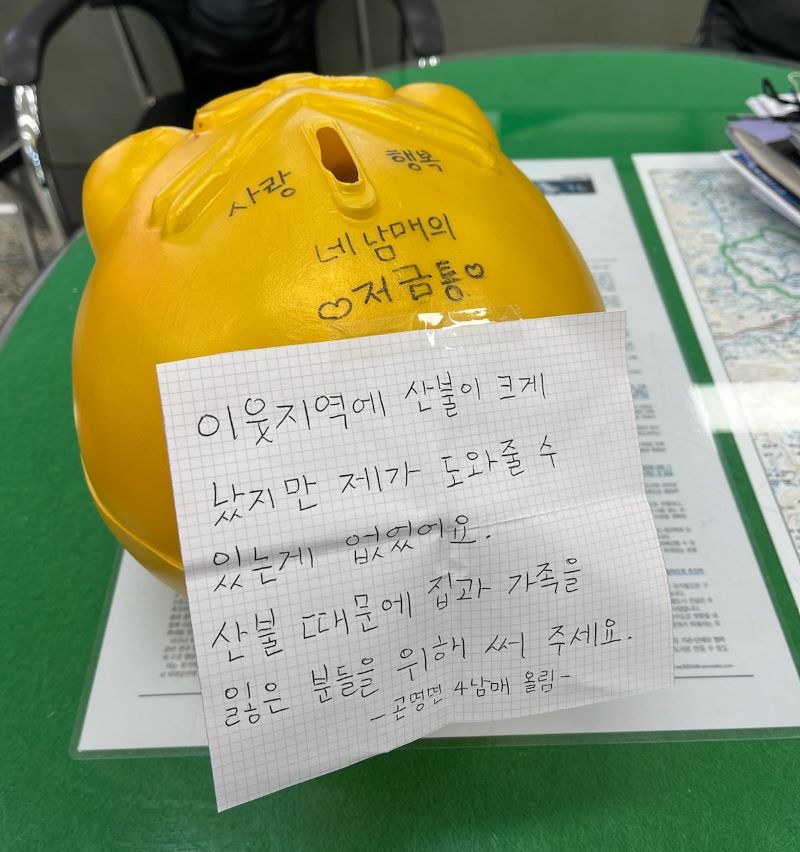 사랑 행복
네 남매의
♡저금통♡
이웃지역에 산불이 크게
났지만 제가 도와줄 수
있는게 없었어요.
산불 때문에 집과 가족을
잃은 분들을 위해 써 주세요.
-곤명면 4남매 올림-